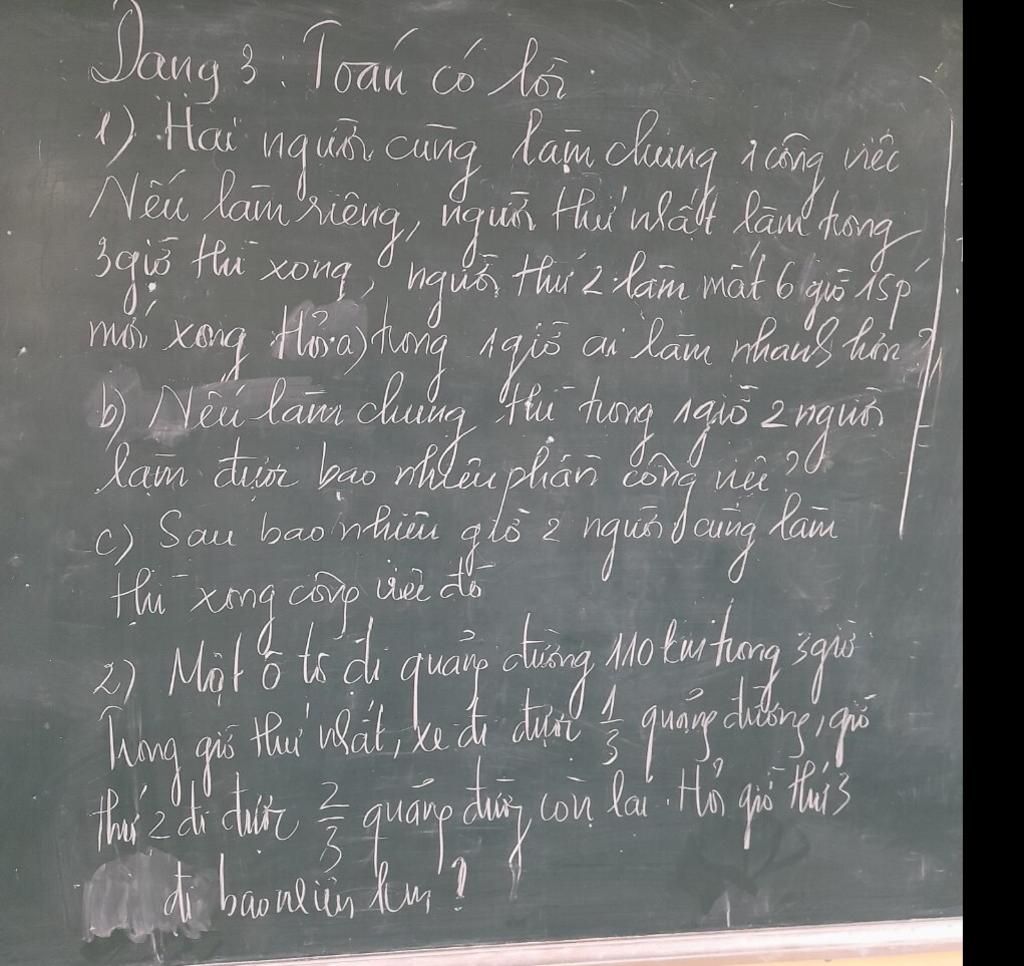 Dạng 3: Toán có lời
1) Hai người cùng làm chung 1 công việc
Nếu làm riêng, người thứ nhất làm trong
3 giờ thì xong, người thứ 2 làm mất 6 giờ 15p
mới xong Hỏi a) trong 1 giờ ai làm nhanh hơn?
b) Nếu làm chung thì trong 1 giờ 2 người
làm được bao nhiêu phần công việc?
c) Sau bao nhiêu giờ 2 người cùng làm
thì xong công việc đó
2) Một ô tô đi quãng đường 110 km trong 3 giờ
Trong giờ thứ nhất, xe đi được 1/3 quãng đường, giờ
thứ 2 đi được 2/3 quãng đường còn lại. Hỏi giờ thứ 3
đi bao nhiêu km?